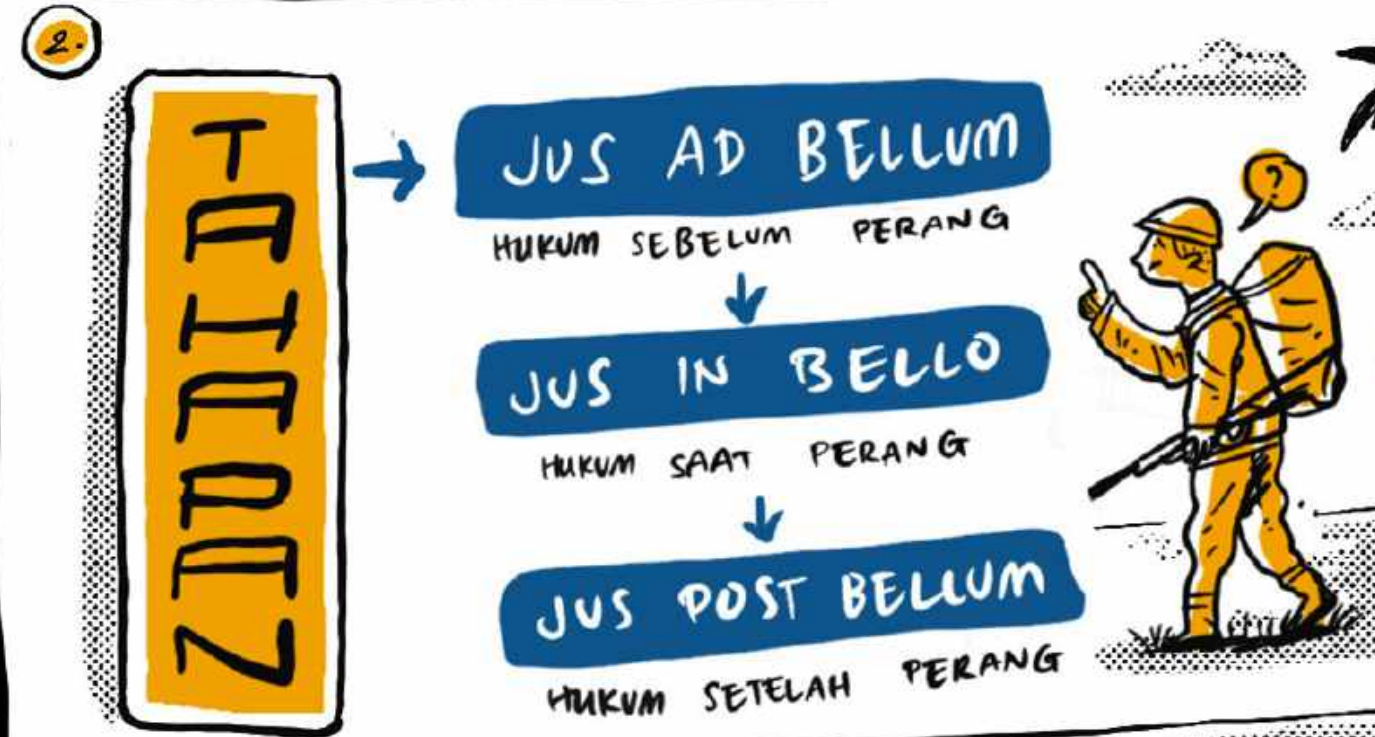 2.
TAHAPAN
JUS AD BELLUM
HUKUM SEBELUM PERANG
JUS IN BELLO
HUKUM SAAT PERANG
JUS POST BELLUM
HUKUM SETELAH PERANG
?